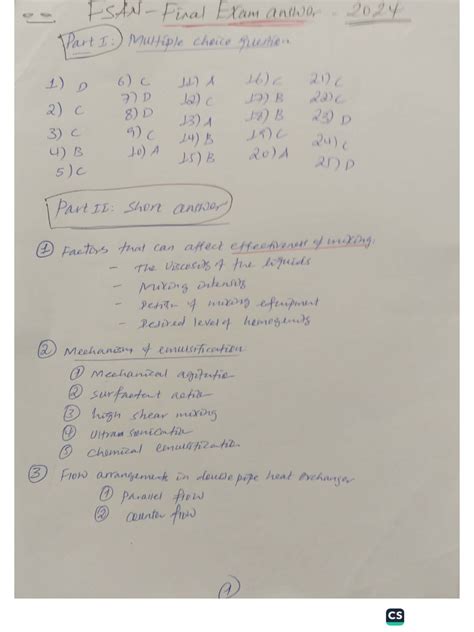 FSAN - Final Exam answer - 2024
Part I: Multiple choice question
1) D 6) C 11) A 16) C 21) C
2) C 7) D 12) C 17) B 22) C
3) C 8) D 13) A 18) B 23) D
4) B 9) C 14) B 19) C 24) C
5) C 10) A 15) B 20) A 25) D
Part II: Short answer
① Factors that can affect effectiveness of mixing:
- The viscosity of the liquids
- Mixing intensity
- Design of mixing equipment
- Desired level of homogenity
② Mechanism of emulsification
① Mechanical agitation
② surfactant action
③ high shear mixing
④ ultrasonication
⑤ chemical emulsification
③ Flow arrangements in double pipe heat exchanger
① Parallel flow
② counter flow
1
CS